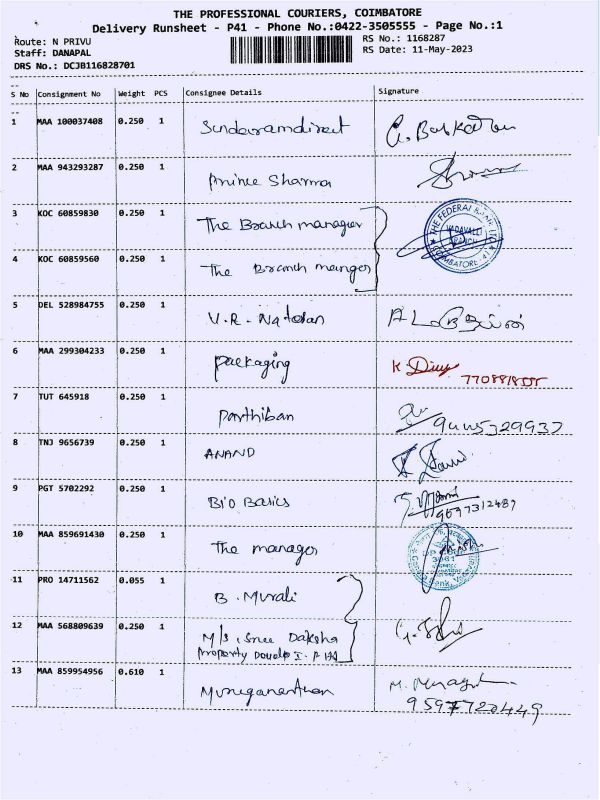 THE PROFESSIONAL COURIERS, COIMBATORE
Delivery Runsheet - P41 - Phone No.:0422-3505555 - Page No.:1
Route: N PRIVU
RS No.: 1168287
Staff: DANAPAL
RS Date: 11-May-2023
DRS No.: DCJB116828701
S No Consignment No Weight PCS Consignee Details Signature
1 MAA 100037408 0.250 1 Sundaramdirect G. Baskaran
2 MAA 943293287 0.250 1 Prince Sharma
3 KOC 60859830 0.250 1 The Branch manager
THE FEDERAL BANK LTD
VADAVALLI
BRANCH
COIMBATORE-41
4 KOC 60859560 0.250 1 The Branch manger
5 DEL 528984755 0.250 1 V.R. Natesan
6 MAA 299304233 0.250 1 Packaging K
7 TUT 645918 0.250 1 Parthiban
8 TNJ 9656739 0.250 1 ANAND
9 PGT 5702292 0.250 1 BIO Basics
9697312487
10 MAA 859691430 0.250 1 The manager
11 PRO 14711562 0.055 1 B. Murali
12 MAA 568809639 0.250 1 M/s. Sree Daksha
Property
13 MAA 859954956 0.610 1 Murugananthan M.
9597720449